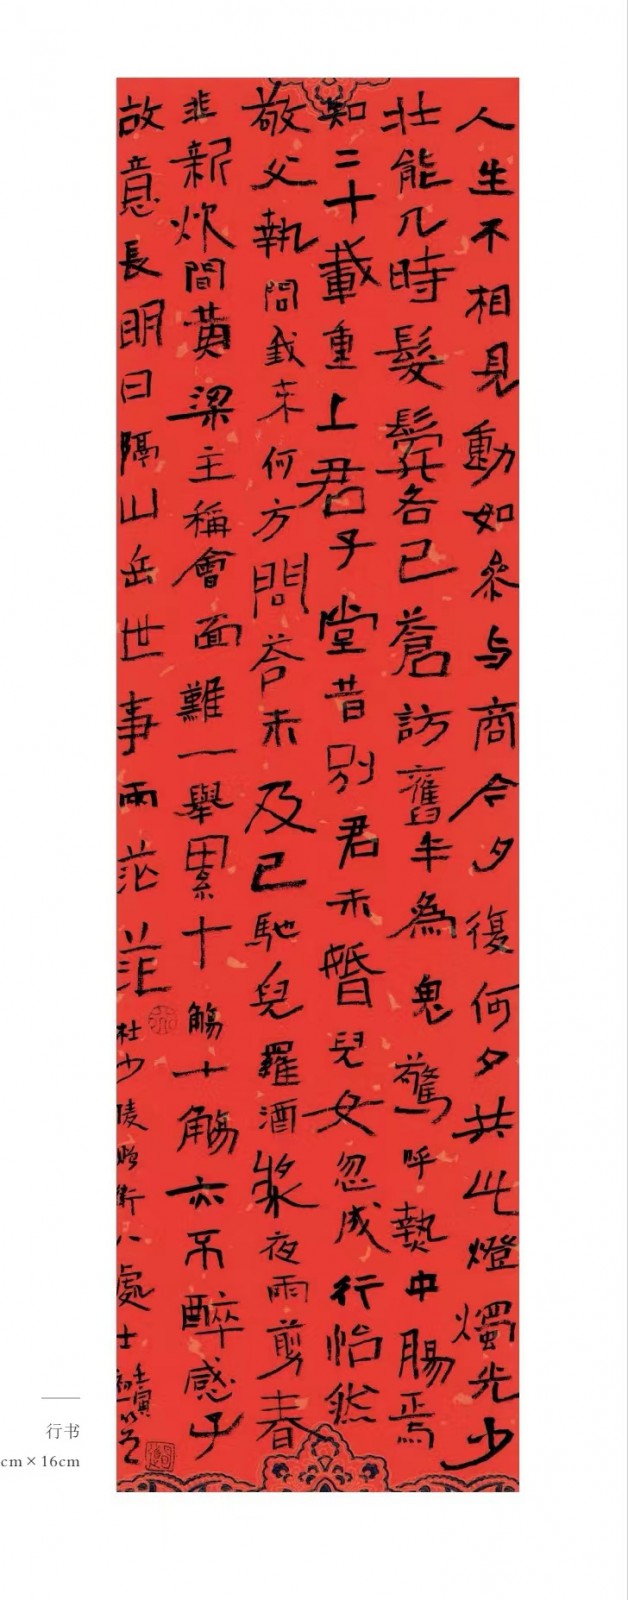 人生不相見動如參与商今夕復何夕共此燈燭光少
壯能几時髮鬢各已蒼訪舊半為鬼驚呼熱中腸焉
知二十載重上君子堂昔别君未婚兒女忽成行怡然
敬父執問我来何方問答未及已馳兒羅酒漿夜雨剪春
韭新炊間黃梁主稱會面難一舉累十觴十觴亦不醉感子
故意長明日隔山岳世事兩茫茫
杜少陵贈衛八處士
壬寅
行书
cm×16cm